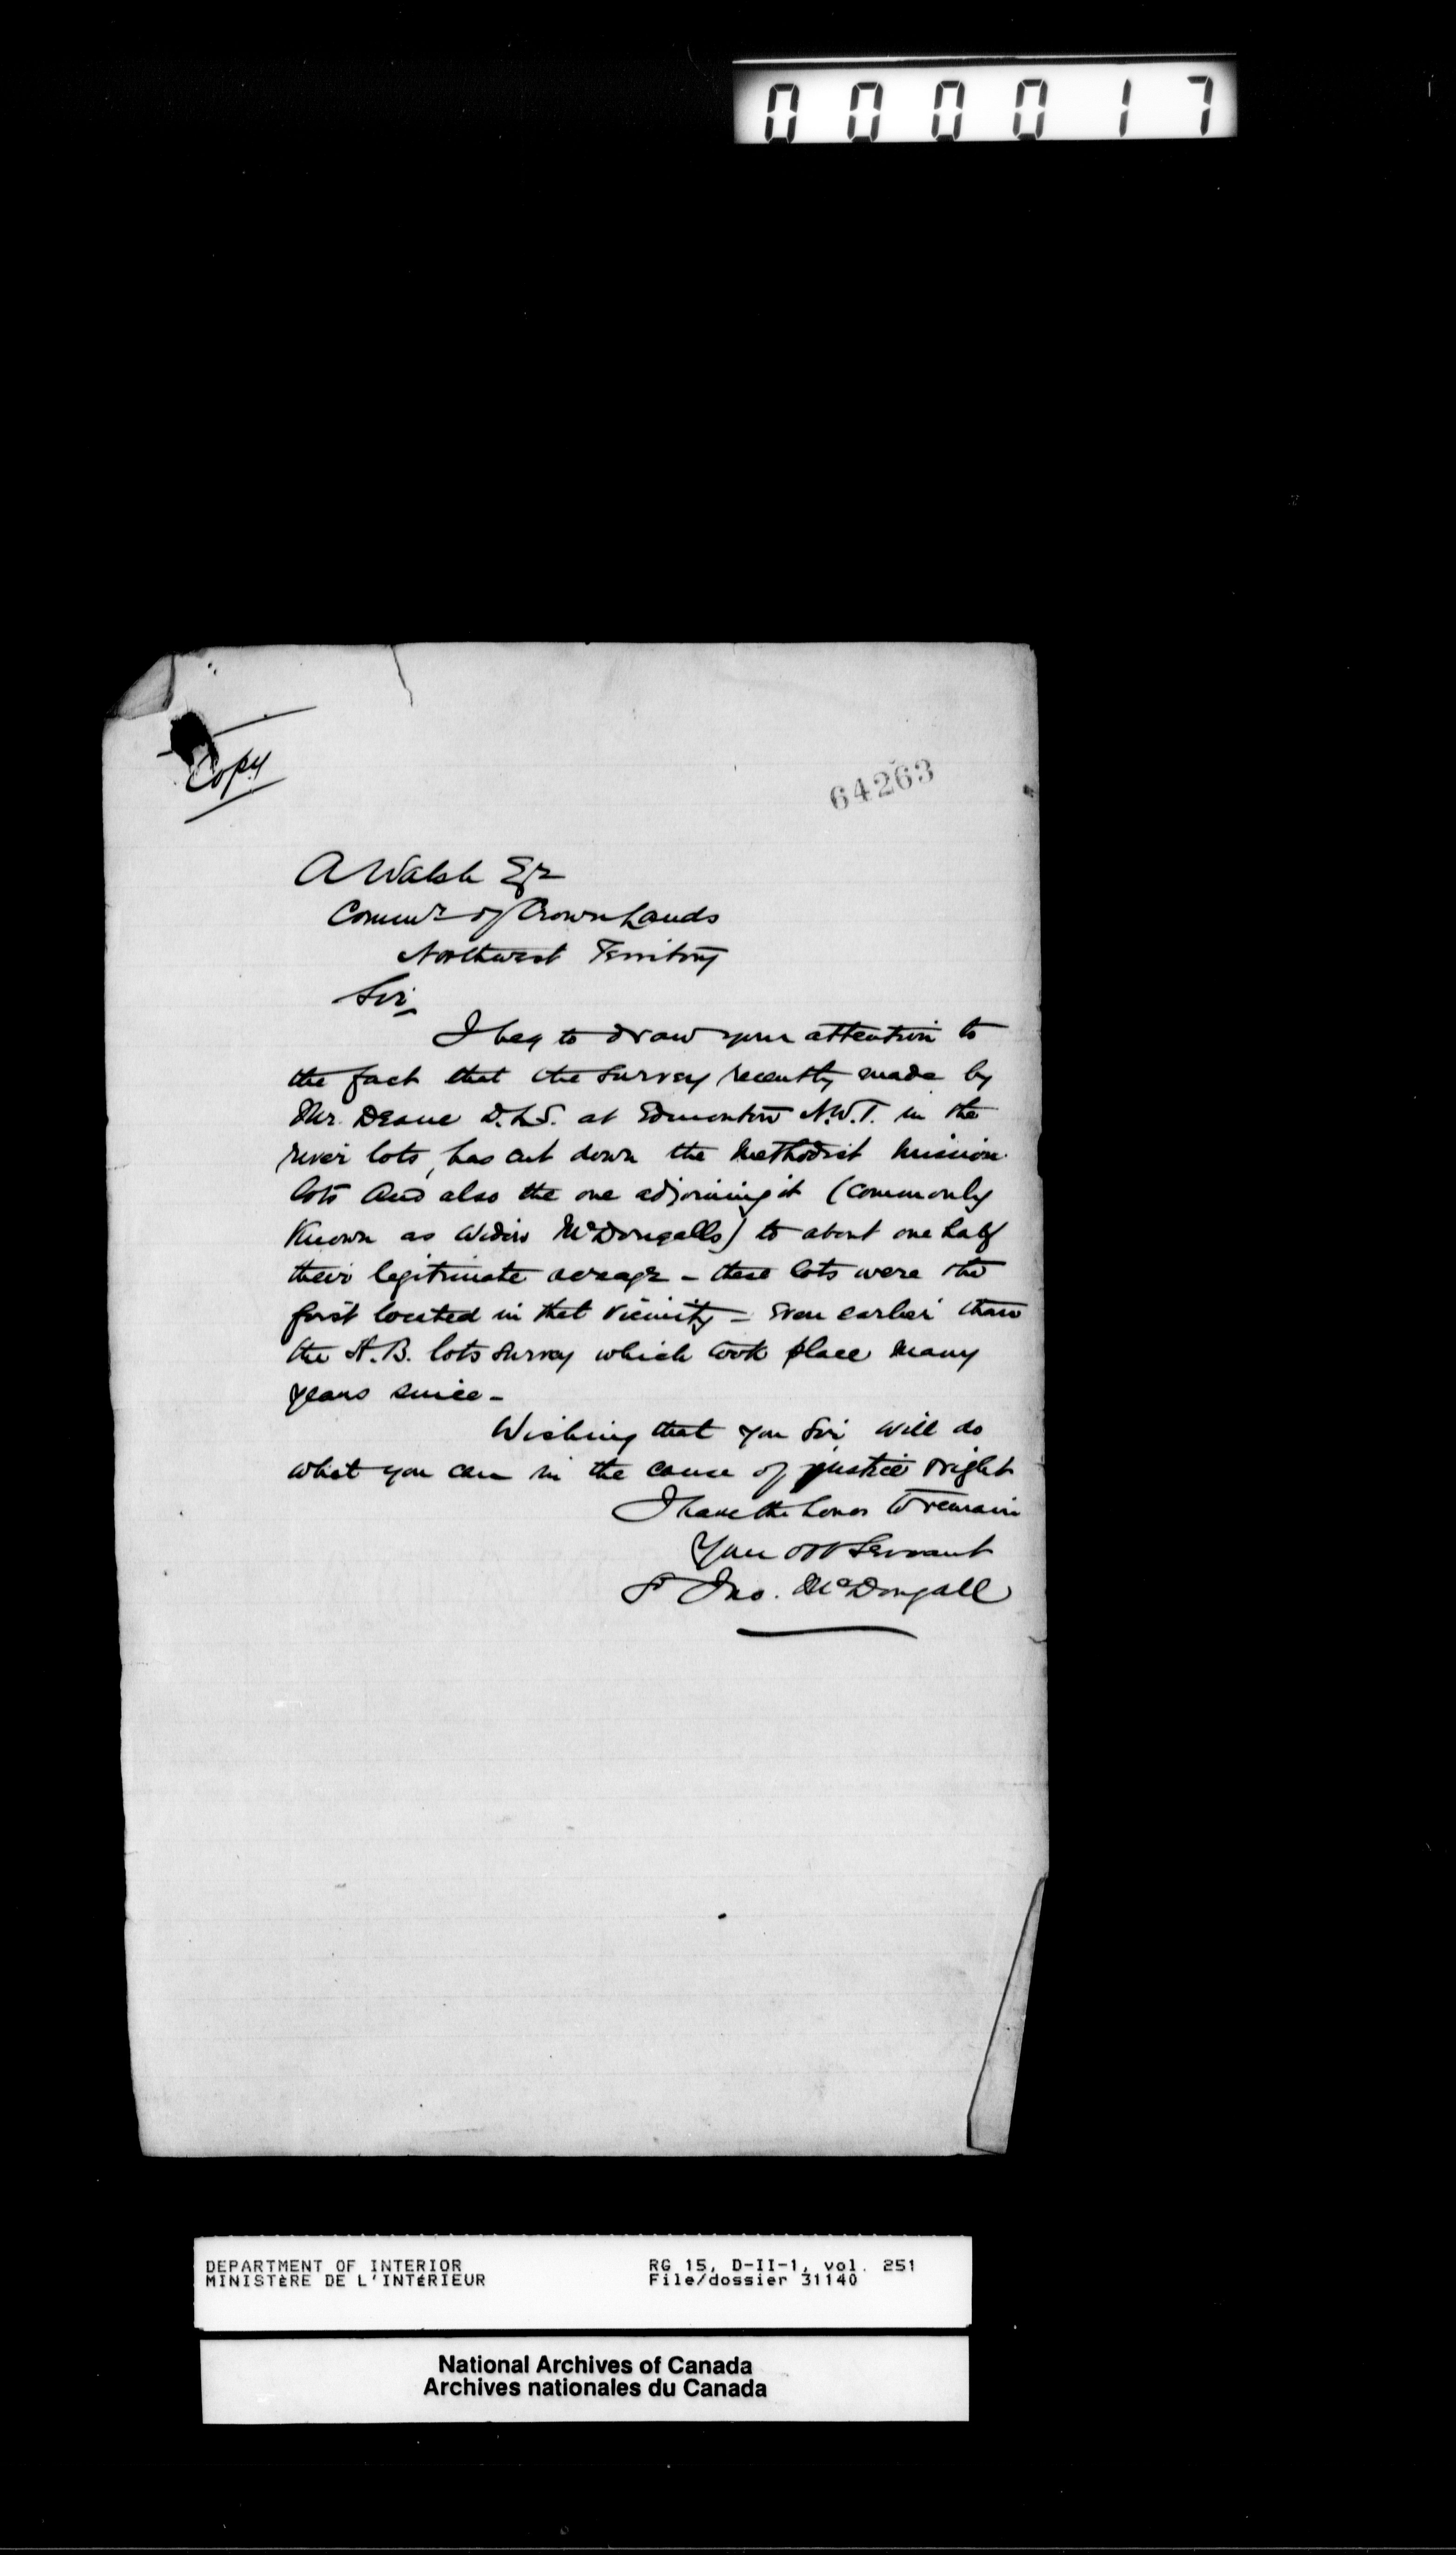 000017
Copy
64263
A Walsh Esqr
Commr of Crown Lands
Northwest Territory
Sir
I beg to draw your attention to
the fact that the survey recently made by
Mr. Deane D.L.S. at Edmonton N.W.T. in the
river lots, has cut down the Methodist Mission
lots and also the one adjoining it (commonly
Known as Widow McDougalls) to about one half
their legitimate acreage - these lots were the
first located in that vicinity - Even earlier than
the H.B. lots survey which took place many
years since -
Wishing that you Sir will do
what you can in the cause of justice & right
I have the honor to remain
Your obt Servant
Jno. McDougall
DEPARTMENT OF INTERIOR RG 15, D-II-1, vol. 251
MINISTÈRE DE L'INTÉRIEUR File/dossier 31140
National Archives of Canada
Archives nationales du Canada